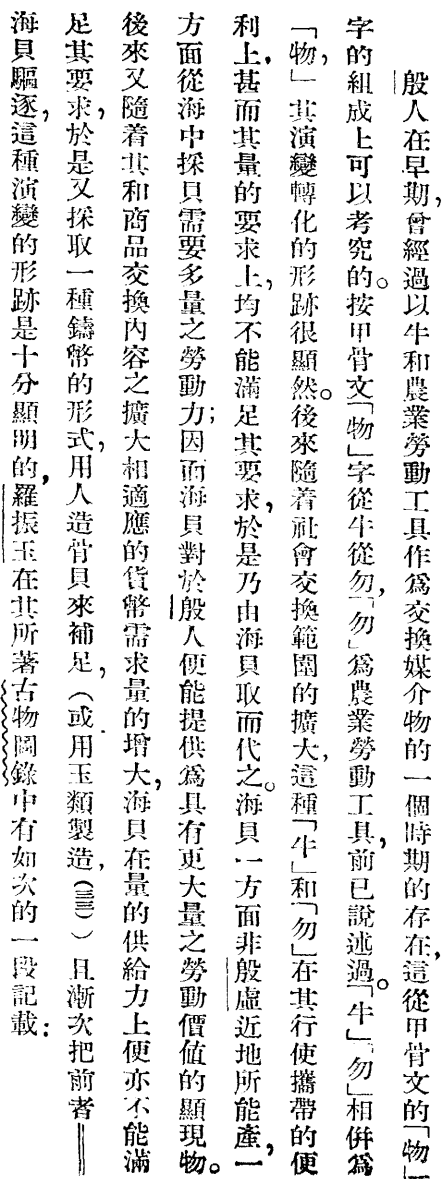 殷人在早期，曾經過以牛和農業勞動工具作爲交換媒介物的一個時期的存在，這從甲骨文的「物」
字的組成上可以考究的。按甲骨文「物」字從牛從勿，「勿」爲農業勞動工具，前已說述過。「牛」「勿」相併爲
「物」其演變轉化的形跡很顯然。後來隨着社會交換範圍的擴大，這種「牛」和「勿」在其行使攜帶的便
利上，甚而其量的要求上，均不能滿足其要求，於是乃由海貝取而代之。海貝一方面非殷虛近地所能產，一
方面從海中採貝需要多量之勞動力；因而海貝對於殷人便能提供爲具有更大量之勞動價値的顯現物。
後來又隨着其和商品交換內容之擴大相適應的貨幣需求量的增大，海貝在量的供給力上便亦不能滿
足其要求，於是又採取一種鑄幣的形式，用人造骨貝來補足，（或用玉類製造，（三））且漸次把前者——
海貝驅逐，這種演變的形跡是十分顯明的，羅振玉在其所著古物圖錄中有如次的一段記載：